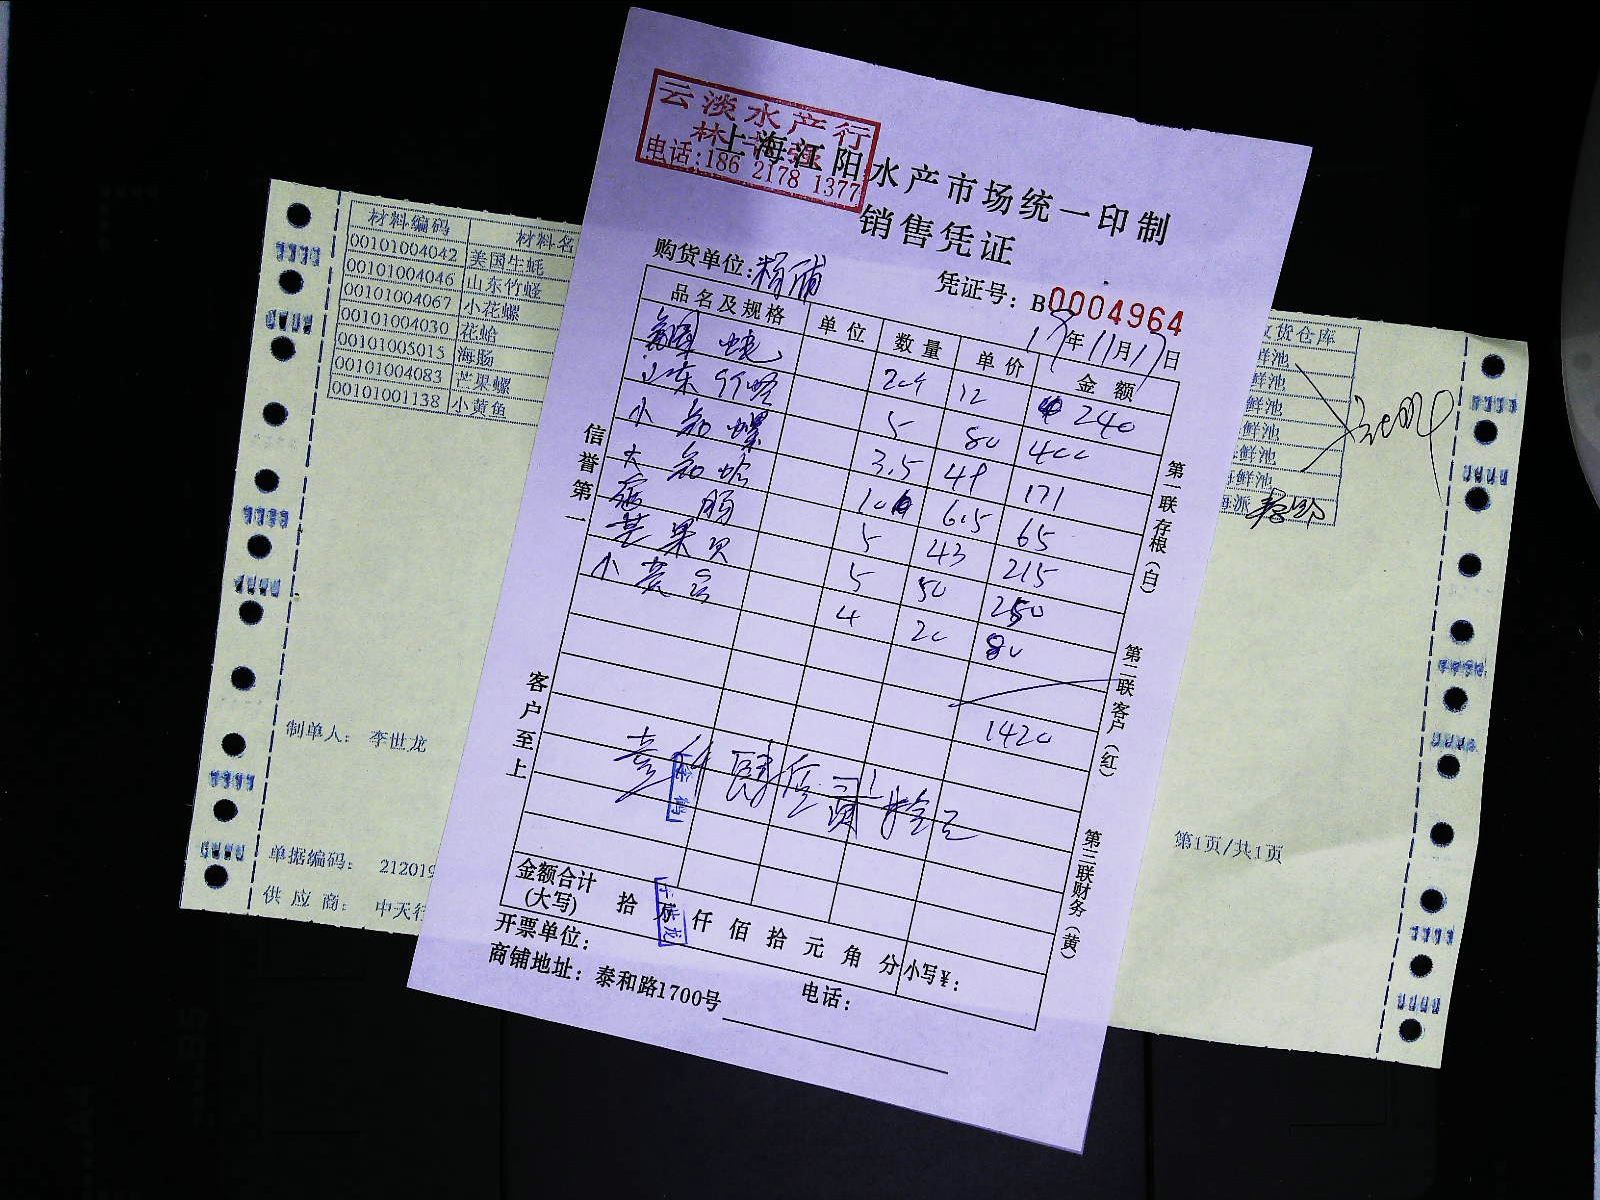 云淡水产行
电话:186 2178 1377
上海江阳水产市场统一印制
销售凭证
购货单位:
凭证号: B0004964
17年11月17日
品名及规格 单位 数量 单价 金额
12 240
山东竹蛏 5 80 400
小花螺 3.5 49 171
大花蛤 10 6.5 65
海肠 5 43 215
芒果贝 5 50 250
小黄鱼 4 20 80
1420
壹仟肆佰贰拾元
金额合计
(大写)
拾 万 仟 佰 拾 元 角 分 小写¥:
开票单位:
电话:
商铺地址: 泰和路1700号
信誉第一
客户至上
第一联存根(白)
第二联客户(红)
第三联财务(黄)
材料编码 材料名
00101004042 美国生蚝
00101004046 山东竹蛏
00101004067 小花螺
00101004030 花蛤
00101005015 海肠
00101004083 芒果螺
00101001138 小黄鱼
制单人: 李世龙
单据编码: 212019
供应商: 中天行
货仓库
鲜池
鲜池
鲜池
鲜池
鲜池
鲜池
海派
第1页/共1页